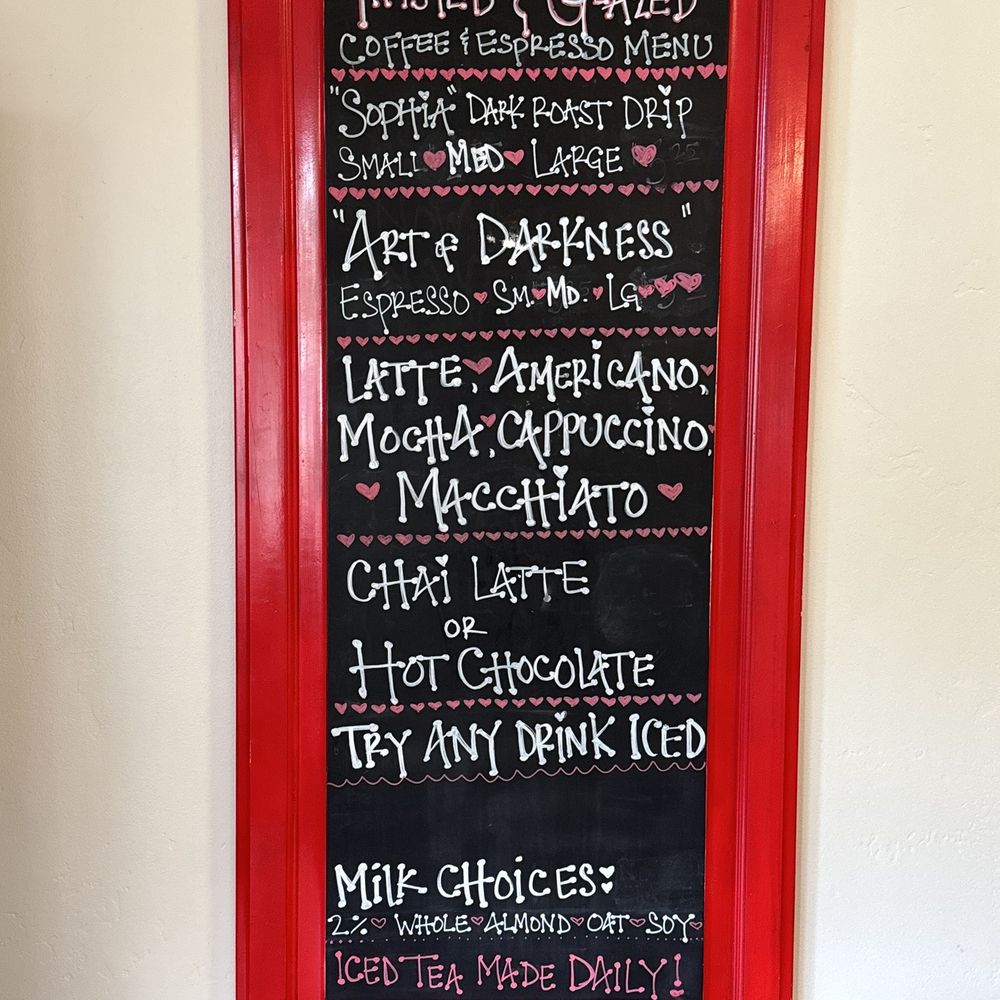 & GLAZED
COFFEE & ESPRESSO MENU
"SOPHiA" DARK ROAST DRiP
SMALL MED LARGE
"ART & DARKNESS"
ESPRESSO SM. MD. LG
LATTE, AMERiCANO,
MOCHA, CAPPUCCiNO,
MACCHiATO
CHAi LATTE
OR
HOT CHOCOLATE
TRY ANY DRiNK ICED
MiLK CHOiCES:
2% WHOLE ALMOND OAT SOY
ICED TEA MADE DAILY!